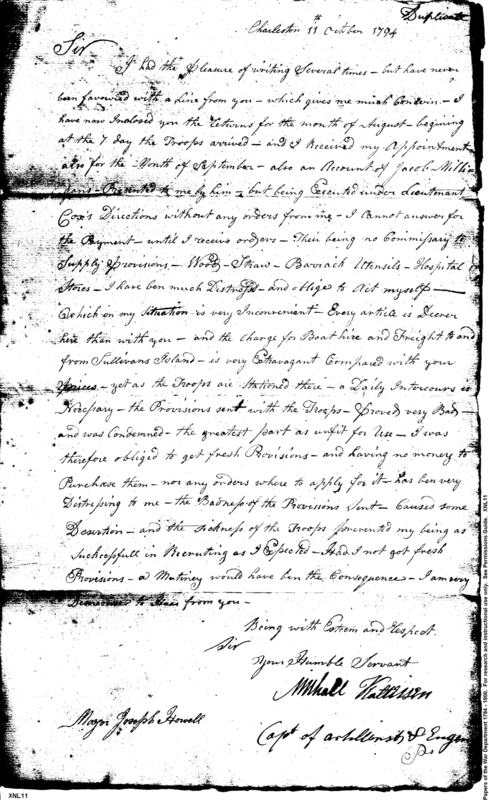 Duplicate
Charleston 11th October 1794
Sir
I had the Pleasure of writing Several times – but have never
been favoured with a Line from you – which gives me much Concern – I
have now Inclosed you the Returns for the month of August – begining
at the 7 day the Troops arrived – and I Received my Appointment
also for the Month of September – also an Account of Jacob Milli-
gans – Presented to me by him – but being Executed under Lieutenant
Cox's Directions without any orders from me – I Cannot answer for
the Payment – until I receive orders – Their being no Commissary to
Supply Provisions – Wood – Straw – Barrack Utensils – Hospital
Stores – I have ben much Distressed – and oblige to Act myself –
Which in my situation is very Inconvenient – Every article is Dearer
here than with you – and the Charge for Boat hire and Freight to and
from Sullivans Island – is very Extravagant Compared with your
Prices – yet as the Troops are Stationed there – a Daily Intercours is
Necessary – the Provisions sent with the Troops – Proved very Bad –
and was Condemned – the greatest part as unfit for Use – I was
therefore obliged to get fresh Provisions – and having no money to
Purchase them – nor any orders where to apply for it – has ben very
Distressing to me – the Badness of the Provisions Sent – Caused some
Desertion – and the Sickness of the Troops prevented my being as
Suckcessfull in Recruiting as I Expected – Had I not got fresh
Provisions – a Mutiney would have ben the Consequence – I am very
to Hear from you –
Being with Esteem and Respect
Sir
Your Humble Servant
Michall Kalteisen
Capt of artillerists & Engin
Majr Joseph Howell
XNL11
Papers of the War Department 1784 - 1800. For research and instructional use only. See Permissions Guide. XNL11